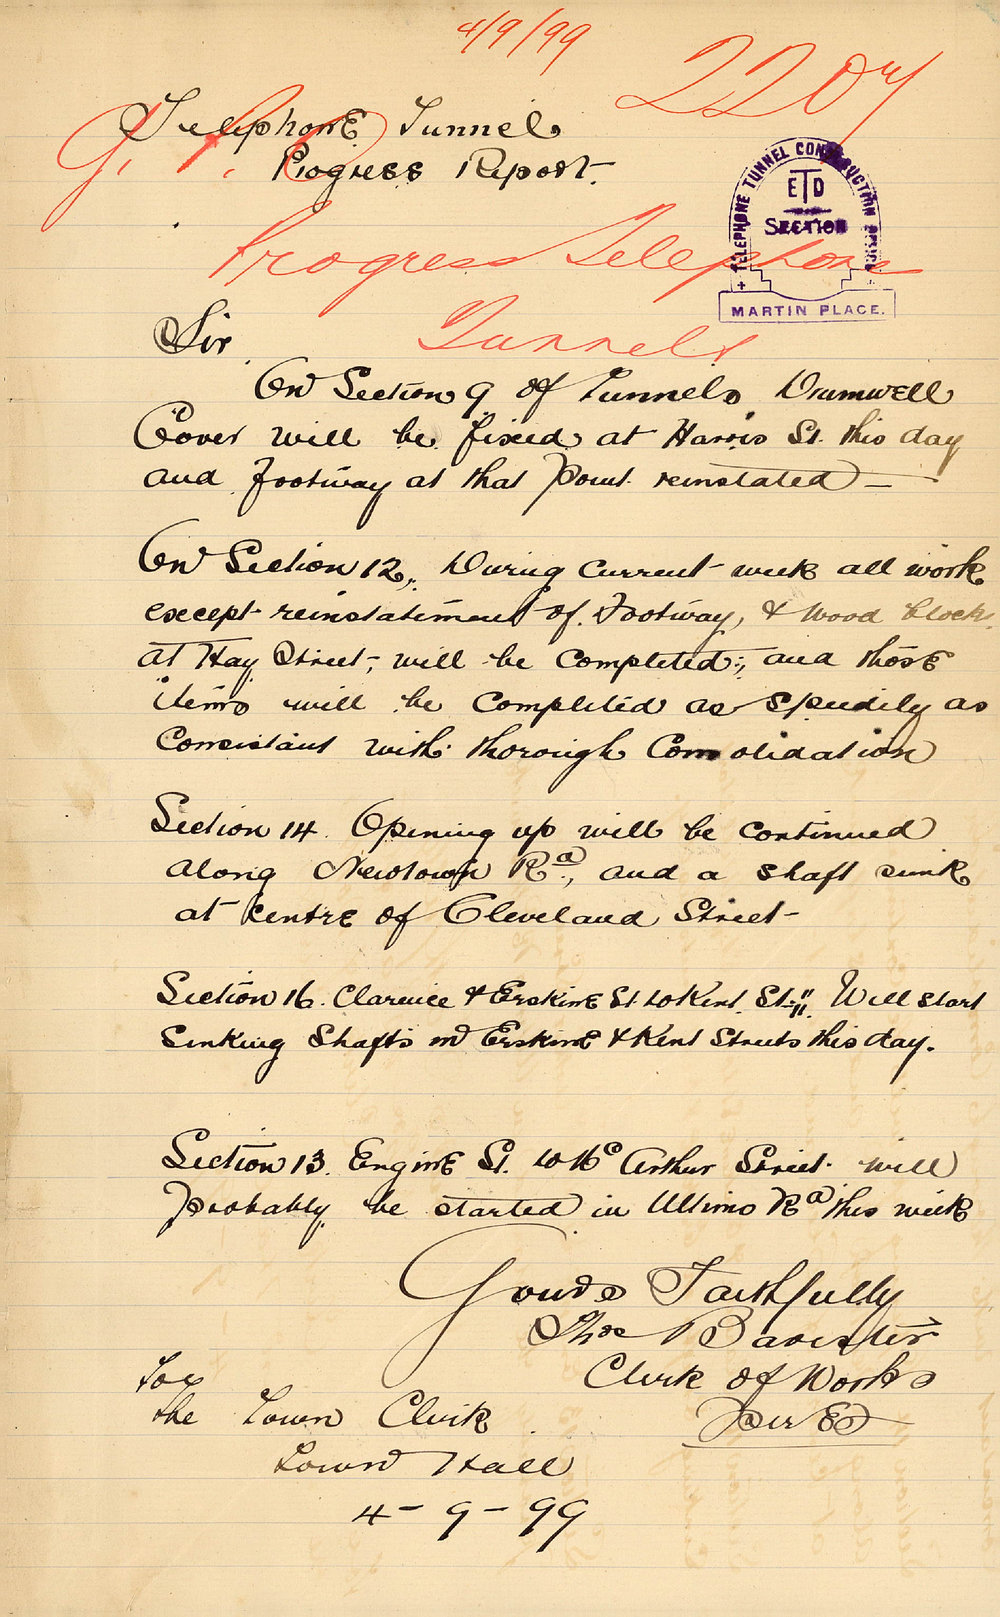 4/9/99
2207
Telephone Tunnels
Progress Report.
G. P. O
Progress Telephone
Tunnels
TELEPHONE TUNNEL CONSTRUCTION
ETD
SECTION
MARTIN PLACE.
Sir
On Section 9 of Tunnels Drumwell
Cover will be fixed at Harris St. this day
and footway at that point reinstated —
On Section 12, During Current week all work
except reinstatement of Footway, & Wood blocks
at Hay Street, will be completed; and those
items will be completed as speedily as
Consistant with thorough Consolidation
Section 14. Opening up will be continued
along Newtown Rd, and a shaft sunk
at centre of Cleveland Street-
Section 16. Clarence & Erskine St. to Kent St. Will start
Sinking Shafts in Erskine & Kent Streets this day.
Section 13. Engine St. to McArthur Street. will
probably be started in Ultimo Rd this week
Yours Faithfully
Thos Banister
Clerk of Works
per ED
To
the Town Clerk
Town Hall
4-9-99